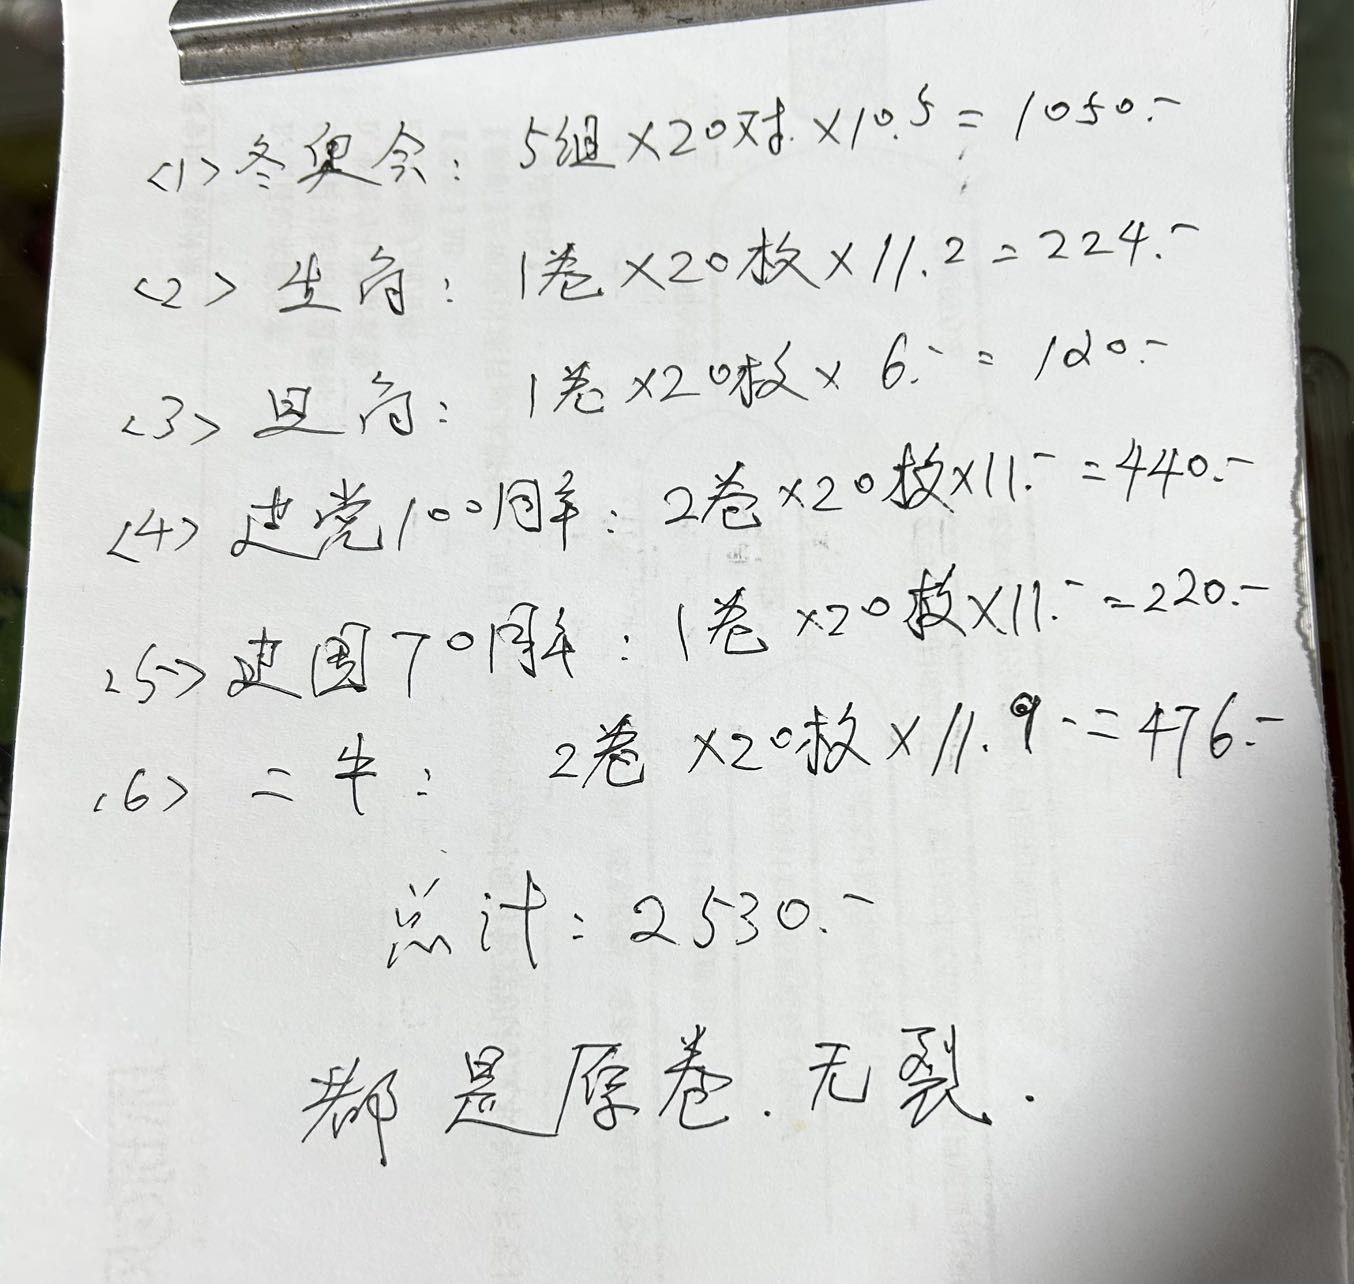 <1>冬奥会: 5组×20对×10.5=1050.-
<2>生肖: 1卷×20枚×11.2=224.-
<3>旦角: 1卷×20枚×6.-=120.-
<4>建党100周年: 2卷×20枚×11.-=440.-
<5>建国70周年: 1卷×20枚×11.-=220.-
<6>二牛: 2卷×20枚×11.9-=476.-
总计: 2530.-
都是原卷.无裂.